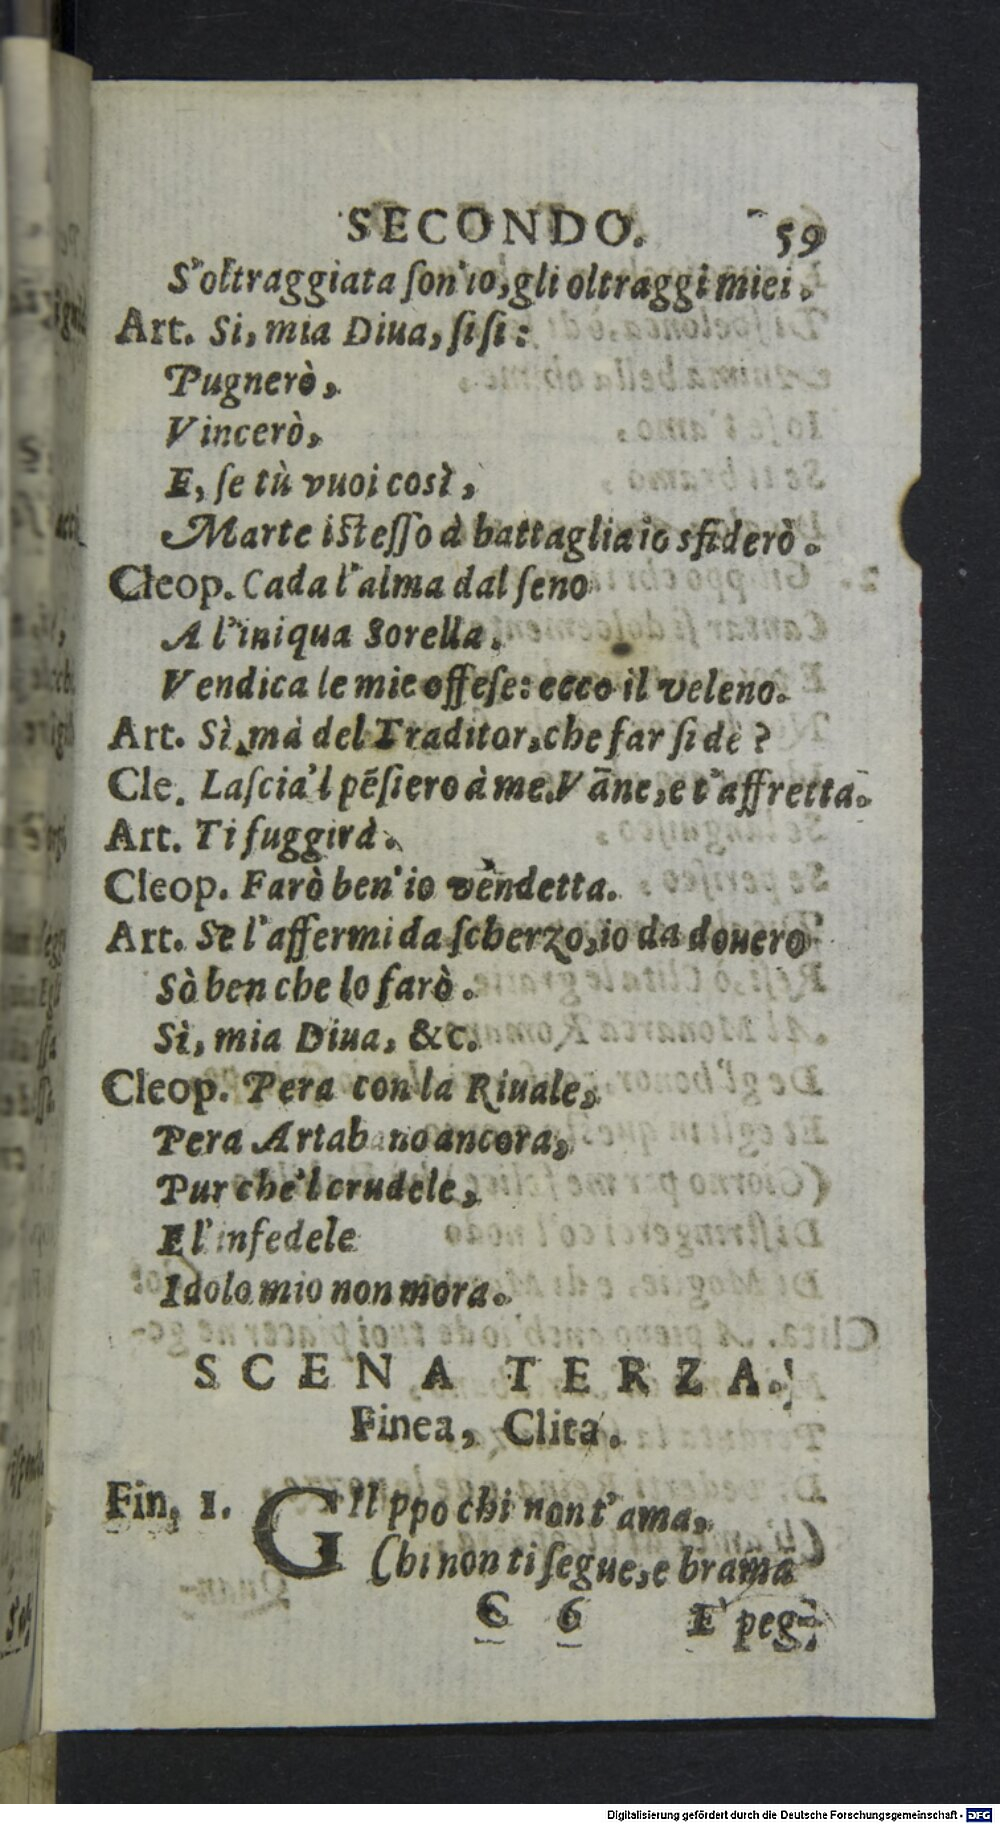 SECONDO. 59
S'oltraggiata son'io, gli oltraggi miei.
Art. Si, mia Diua, si si:
Pugnerò,
Vincerò,
E, se tù vuoi così,
Marte istesso à battaglia io sfiderò.
Cleop. Cada l'alma dal seno
A l'iniqua Sorella.
Vendica le mie offese: ecco il veleno.
Art. Sì, mà del Traditor, che far si dè?
Cle. Lascia'l pẽsiero à me. Vãne, e t'affretta.
Art. Ti fuggirà.
Cleop. Farò ben'io vendetta.
Art. Se l'affermi da scherzo, io da douero
Sò ben che lo farò.
Sì, mia Diua, &c.
Cleop. Pera con la Riuale,
Pera Artabano ancora,
Pur che'l crudele,
E l'infedele
Idolo mio non mora.
SCENA TERZA.
Finea, Clita.
Fin. 1. GIlippo chi non t'ama,
Chi non ti segue, e brama
C 6 E' peg-
Digitalisierung gefördert durch die Deutsche Forschungsgemeinschaft - DFG